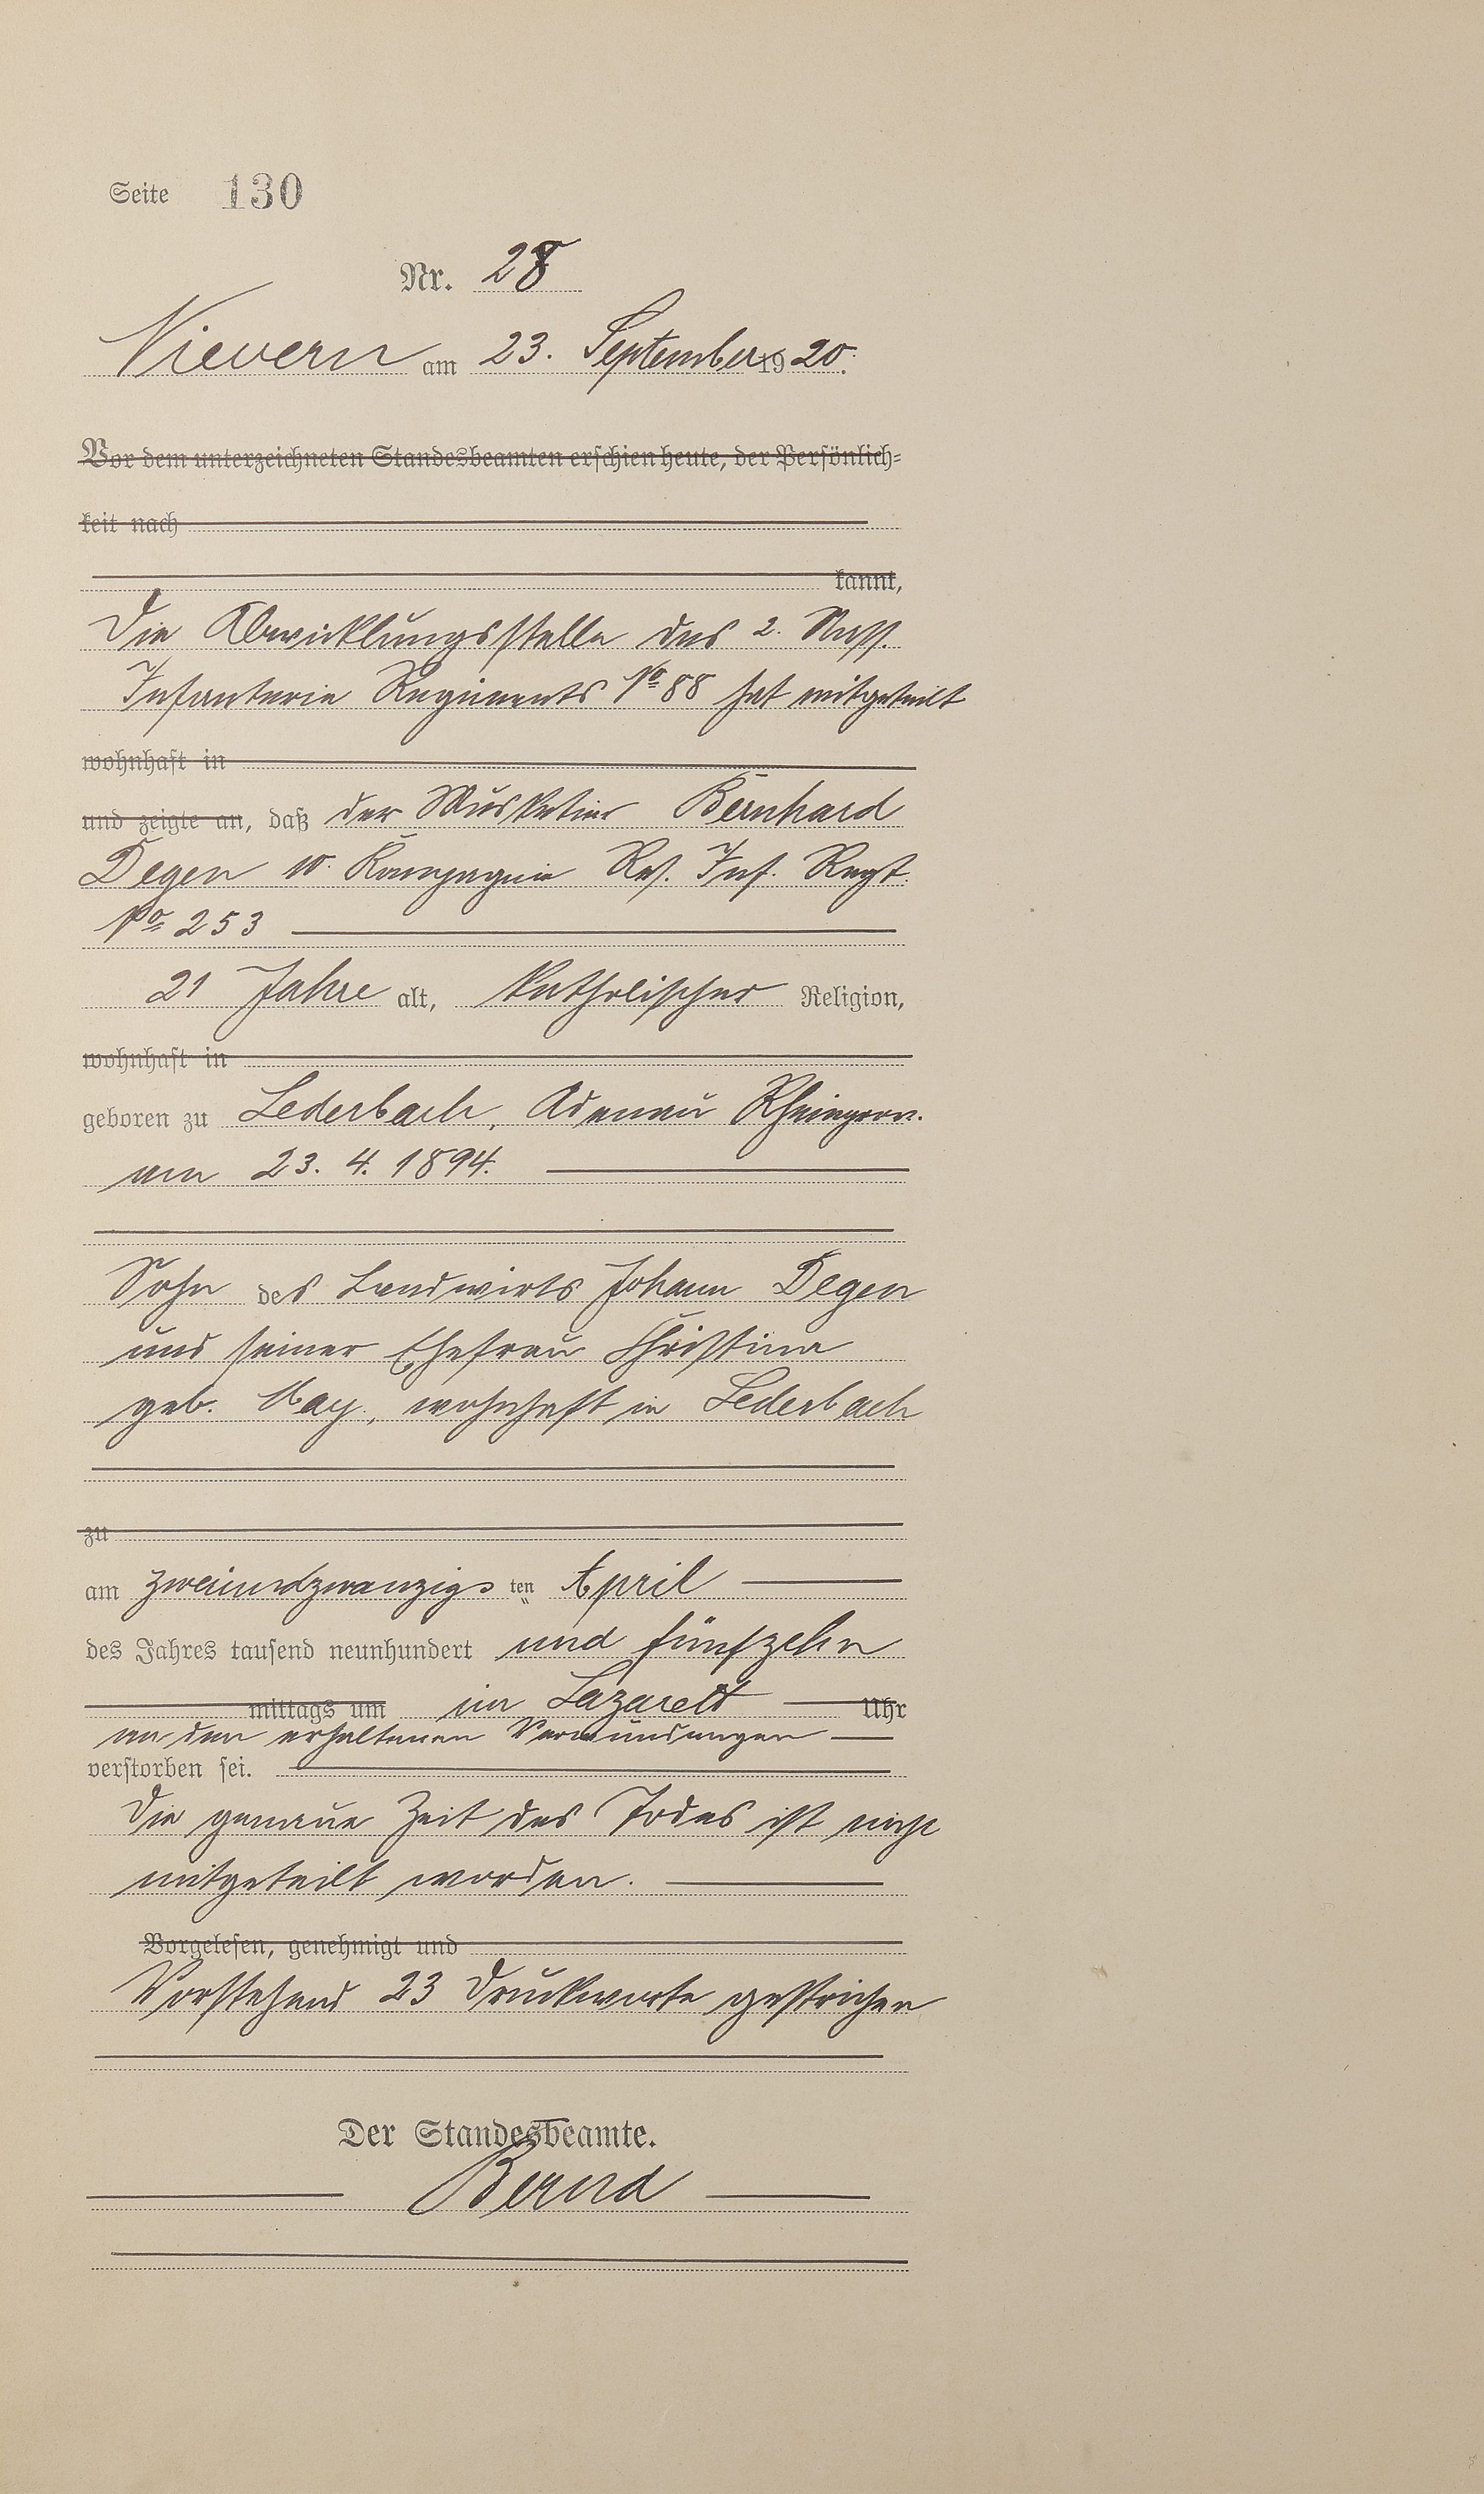 Seite 130
Nr. 28
Nievern am 23. September 1920.
Vor dem unterzeichneten Standesbeamten erschien heute, der Persönlich-
keit nach
kannt,
Die Abwicklungsstelle des 2. Nass.
Infanterie Regiments No 88 hat mitgeteilt
wohnhaft in
und zeigte an, daß der Musketier Bernhard
Degen 10. Kompagnie Res. Inf. Regt.
No 253
21 Jahre alt, katholischer Religion,
wohnhaft in
geboren zu Lederbach, Adenau Rheinprov.
am 23. 4. 1894.
Sohn des Landwirts Johann Degen
und seiner Ehefrau Christina
geb. May, wohnhaft in Lederbach
zu
am zweiundzwanzigsten April
des Jahres tausend neunhundert und fünfzehn
mittags um im Lazarett Uhr
an den erhaltenen Verwundungen
verstorben sei.
Die genaue Zeit des Todes ist nicht
mitgeteilt worden.
Vorgelesen, genehmigt und
Vorstehend 23 Druckworte gestrichen
Der Standesbeamte.
Bernd